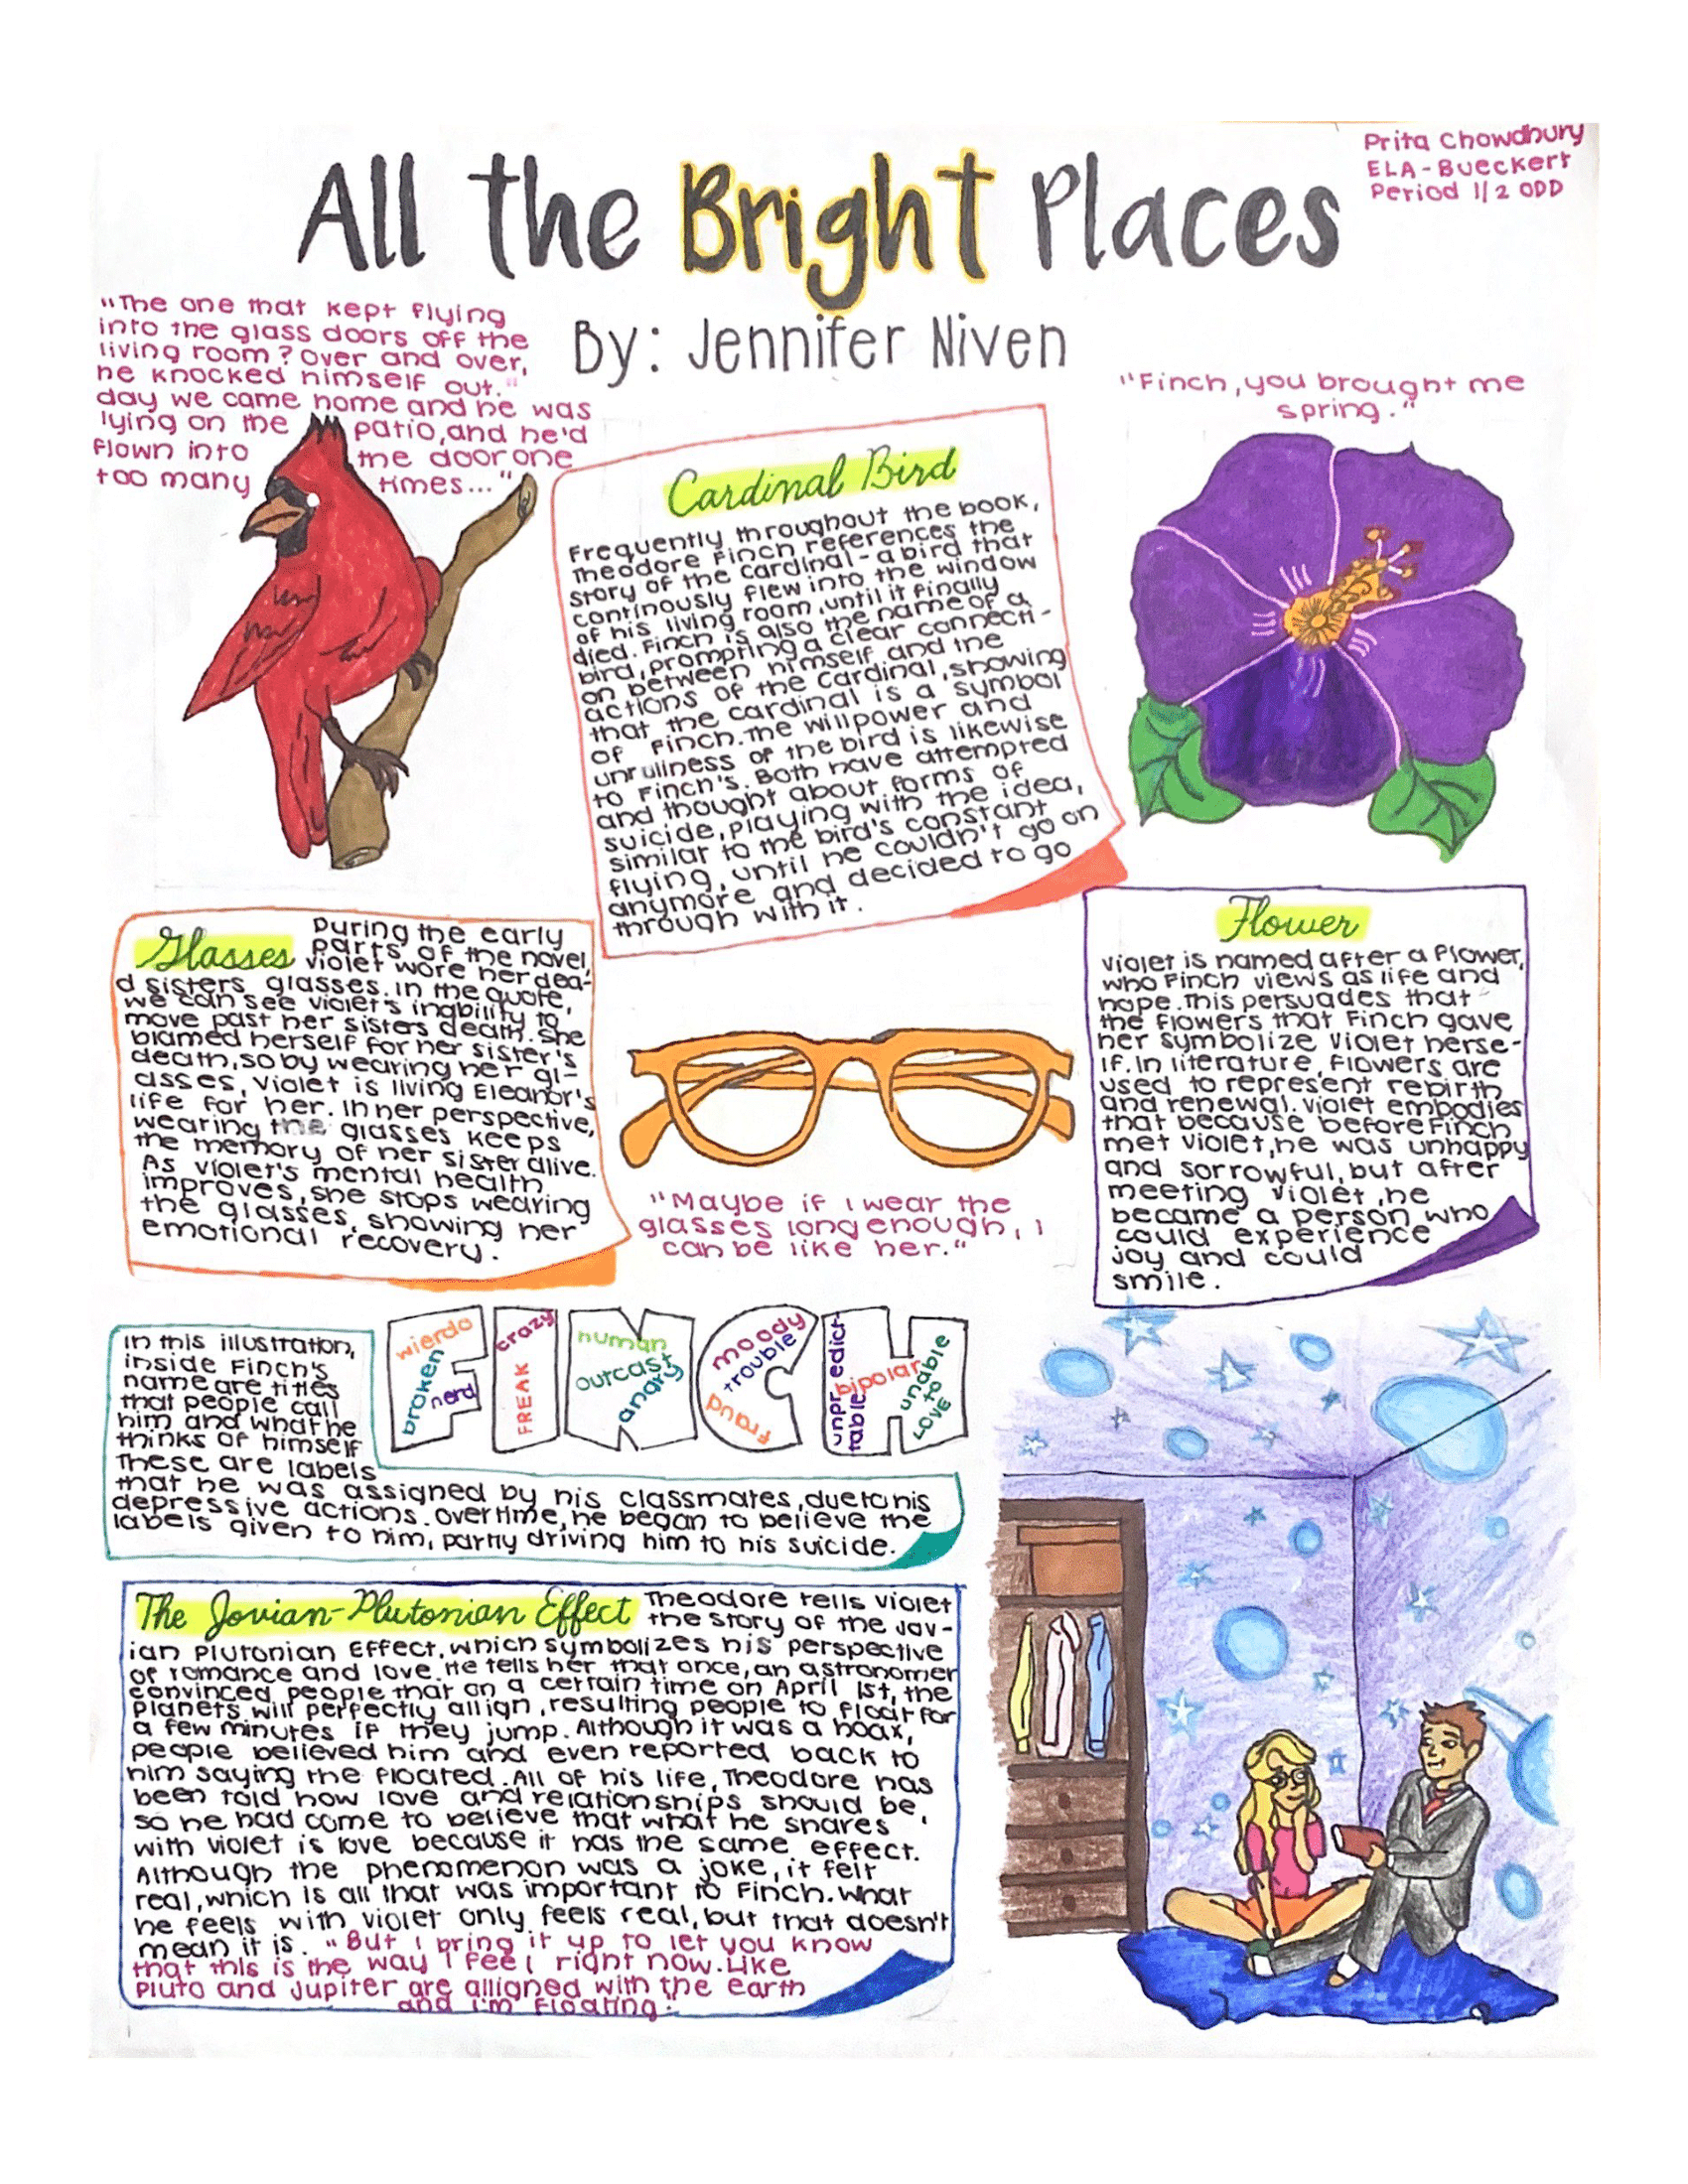 Prita Chowdhury
ELA - Bueckert
Period 1/2 ODD
All the Bright Places
By: Jennifer Niven
"The one that kept flying
into the glass doors off the
living room? Over and over,
he knocked himself out."
day we came home and he was
lying on the patio, and he'd
flown into the door one
too many times..."
"Finch, you brought me
spring."
Cardinal Bird
Frequently throughout the book,
Theodore Finch references the
story of the cardinal - a bird that
continously flew into the window
of his living room, until it finally
died. Finch is also the name of a
bird, prompting a clear connecti-
on between himself and the
actions of the cardinal, showing
that the cardinal is a symbol
of Finch. The willpower and
unruliness of the bird is likewise
to Finch's. Both have attempted
and thought about forms of
suicide, playing with the idea,
similar to the bird's constant
flying, until he couldn't go on
anymore and decided to go
through with it.
Glasses During the early
parts of the novel,
violet wore her dea-
d sisters glasses. In the quote,
we can see violet's inability to
move past her sisters death. She
blamed herself for her sister's
death, so by wearing her gl-
asses, violet is living Eleanor's
life for her. In her perspective,
wearing the glasses keeps
the memory of her sister alive.
As violet's mental health
improves, she stops wearing
the glasses, showing her
emotional recovery.
"Maybe if I wear the
glasses long enough, I
can be like her."
Flower
Violet is named after a flower,
who Finch views as life and
hope. This persuades that
the flowers that Finch gave
her symbolize Violet herse-
lf. In literature, flowers are
used to represent rebirth
and renewal. Violet embodies
that because before Finch
met violet, he was unhappy
and sorrowful, but after
meeting violet, he
became a person who
could experience
joy and could
smile.
In this illustration,
inside Finch's
name are titles
that people call
him and what he
thinks of himself
These are labels
that he was assigned by his classmates, due to his
depressive actions. Overtime, he began to believe the
labels given to him, partly driving him to his suicide.
FINCH
wierdo
broken
nerd
crazy
FREAK
human
outcast
angry
moody
trouble
fraud
unpredict-
table
bipolar
unable
to
LOVE
The Jovian-Plutonian Effect Theodore tells violet
the story of the Jov-
ian Plutonian Effect, which symbolizes his perspective
of romance and love. He tells her that once, an astronomer
convinced people that on a certain time on April 1st, the
planets will perfectly allign, resulting people to float for
a few minutes if they jump. Although it was a hoax,
people believed him and even reported back to
him saying the floated. All of his life, Theodore has
been told how love and relationships should be,
so he had come to believe that what he shares
with violet is love because it has the same effect.
Although the phenomenon was a joke, it felt
real, which is all that was important to Finch. What
he feels with violet only feels real, but that doesn't
mean it is. "But I bring it up to let you know
that this is the way I feel right now. Like
Pluto and Jupiter are alligned with the earth
and I'm floating."